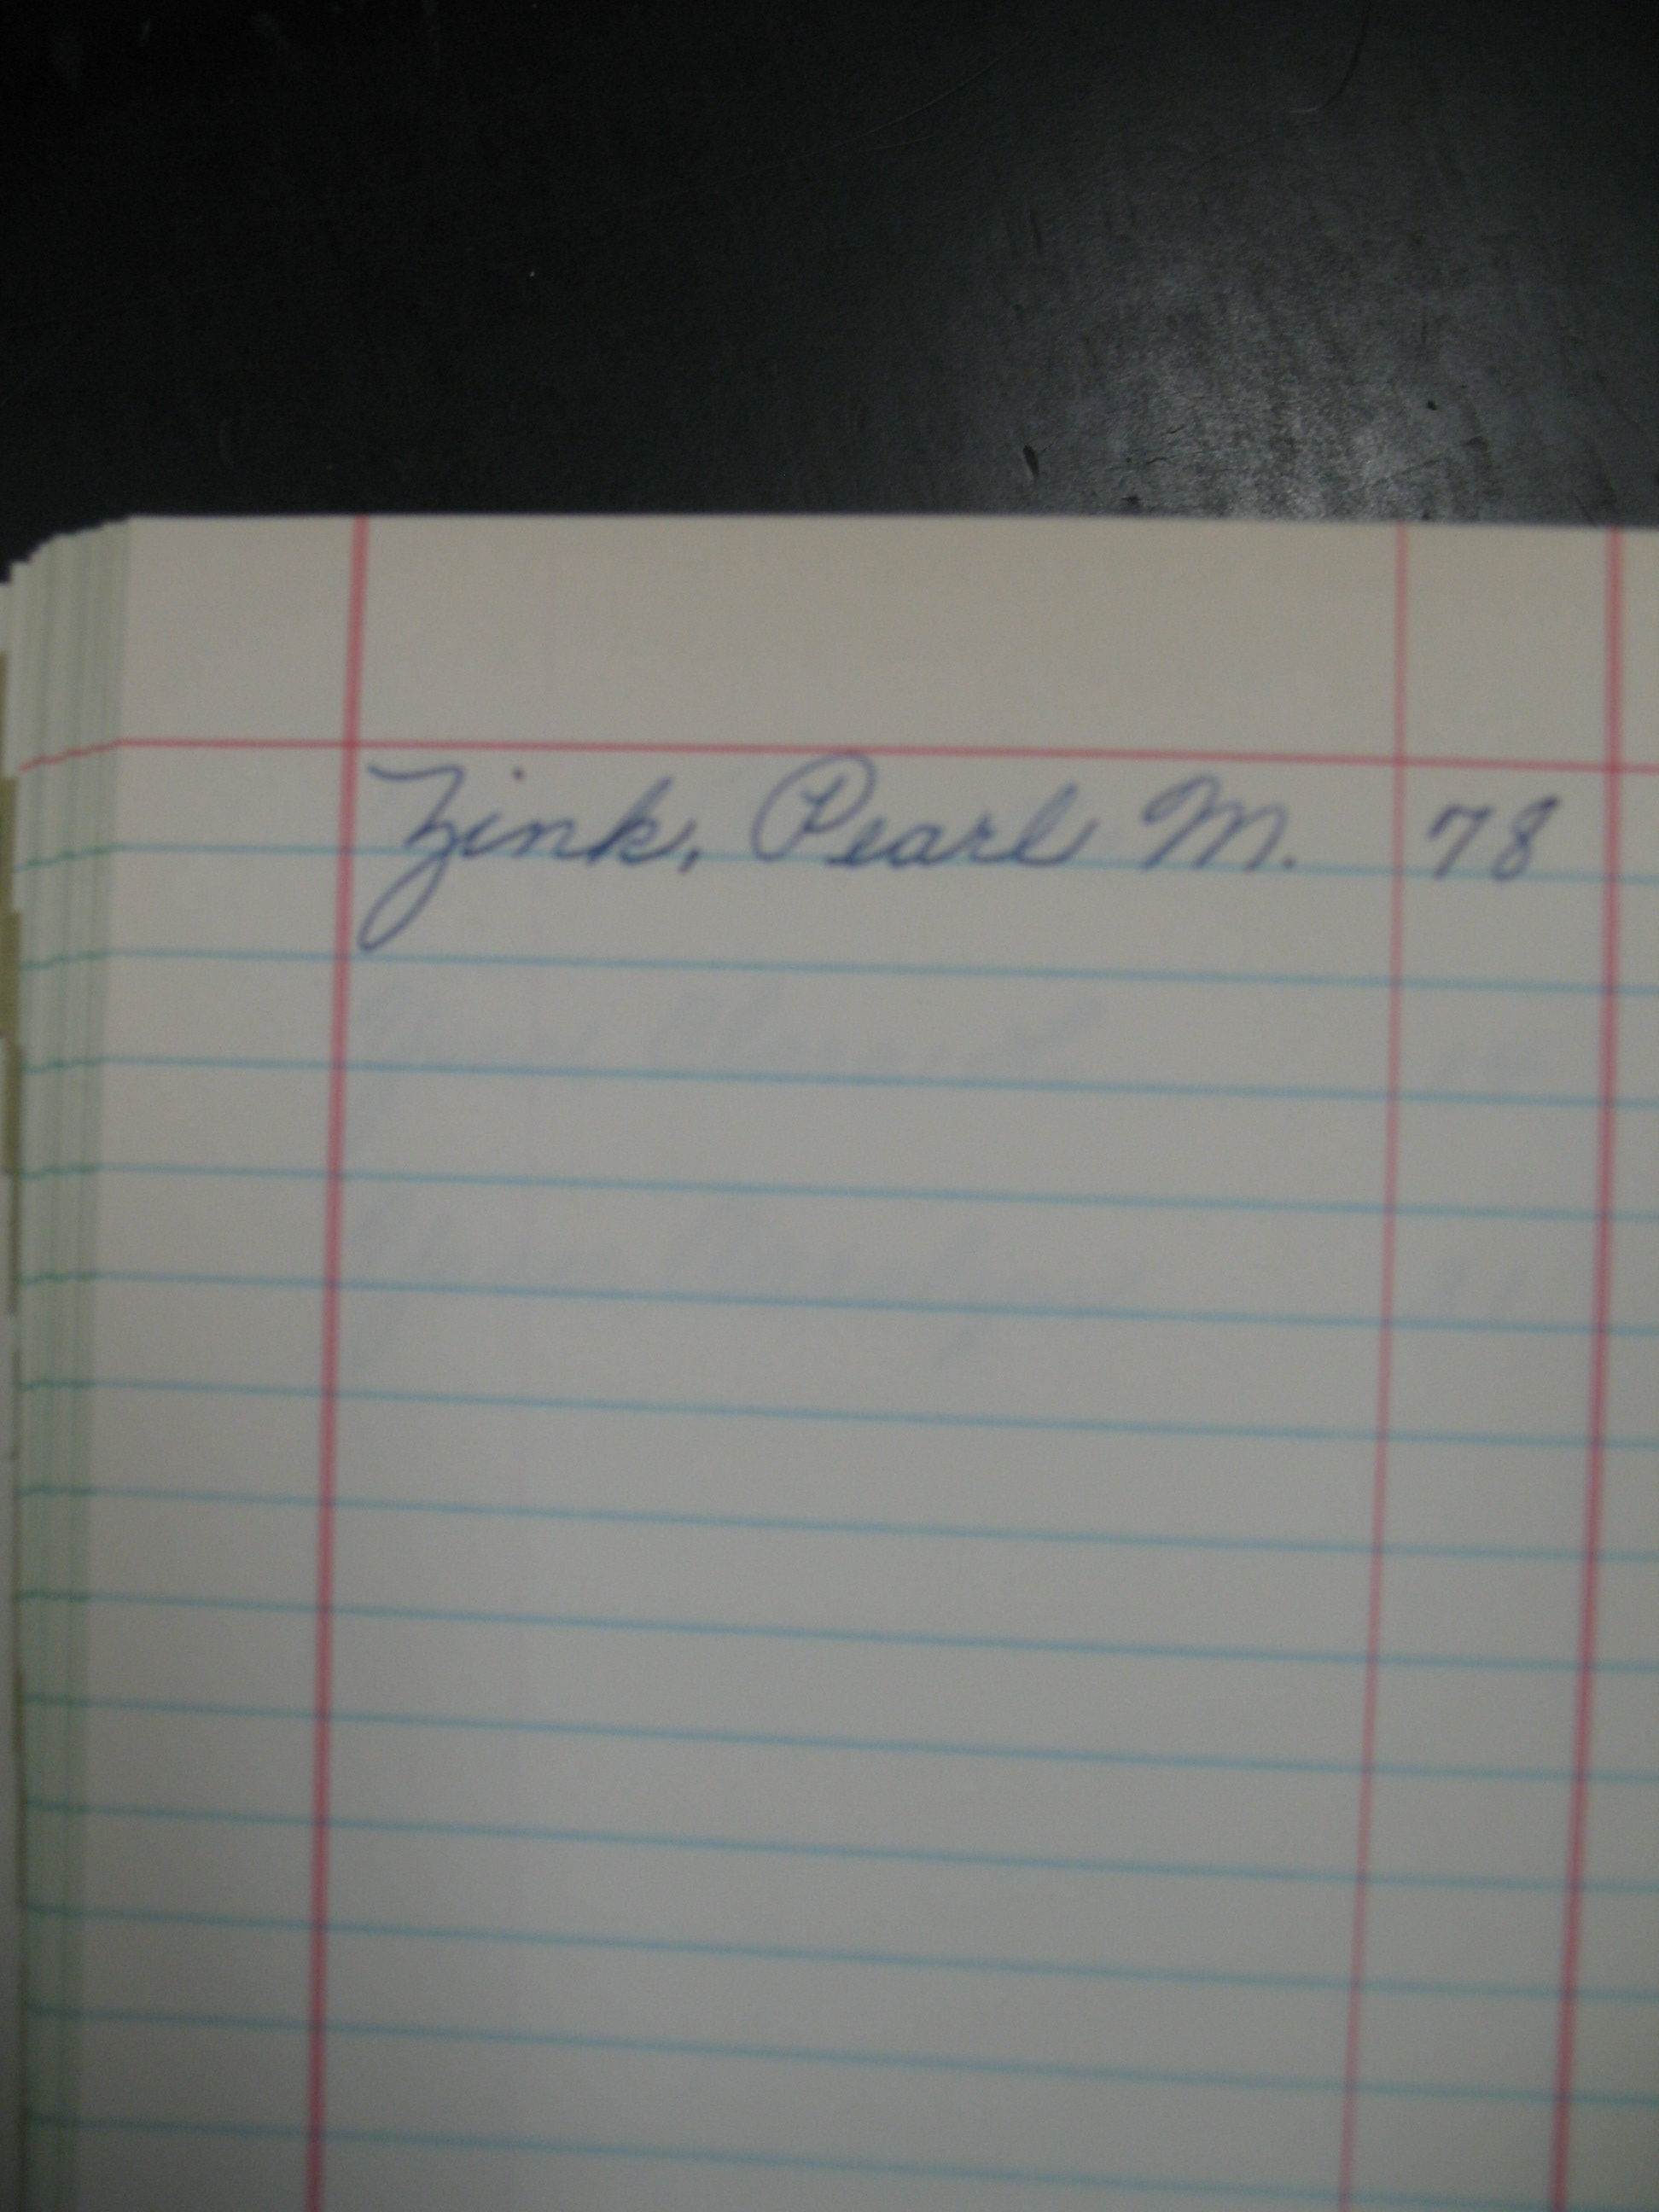 Zink, Pearl M. 78